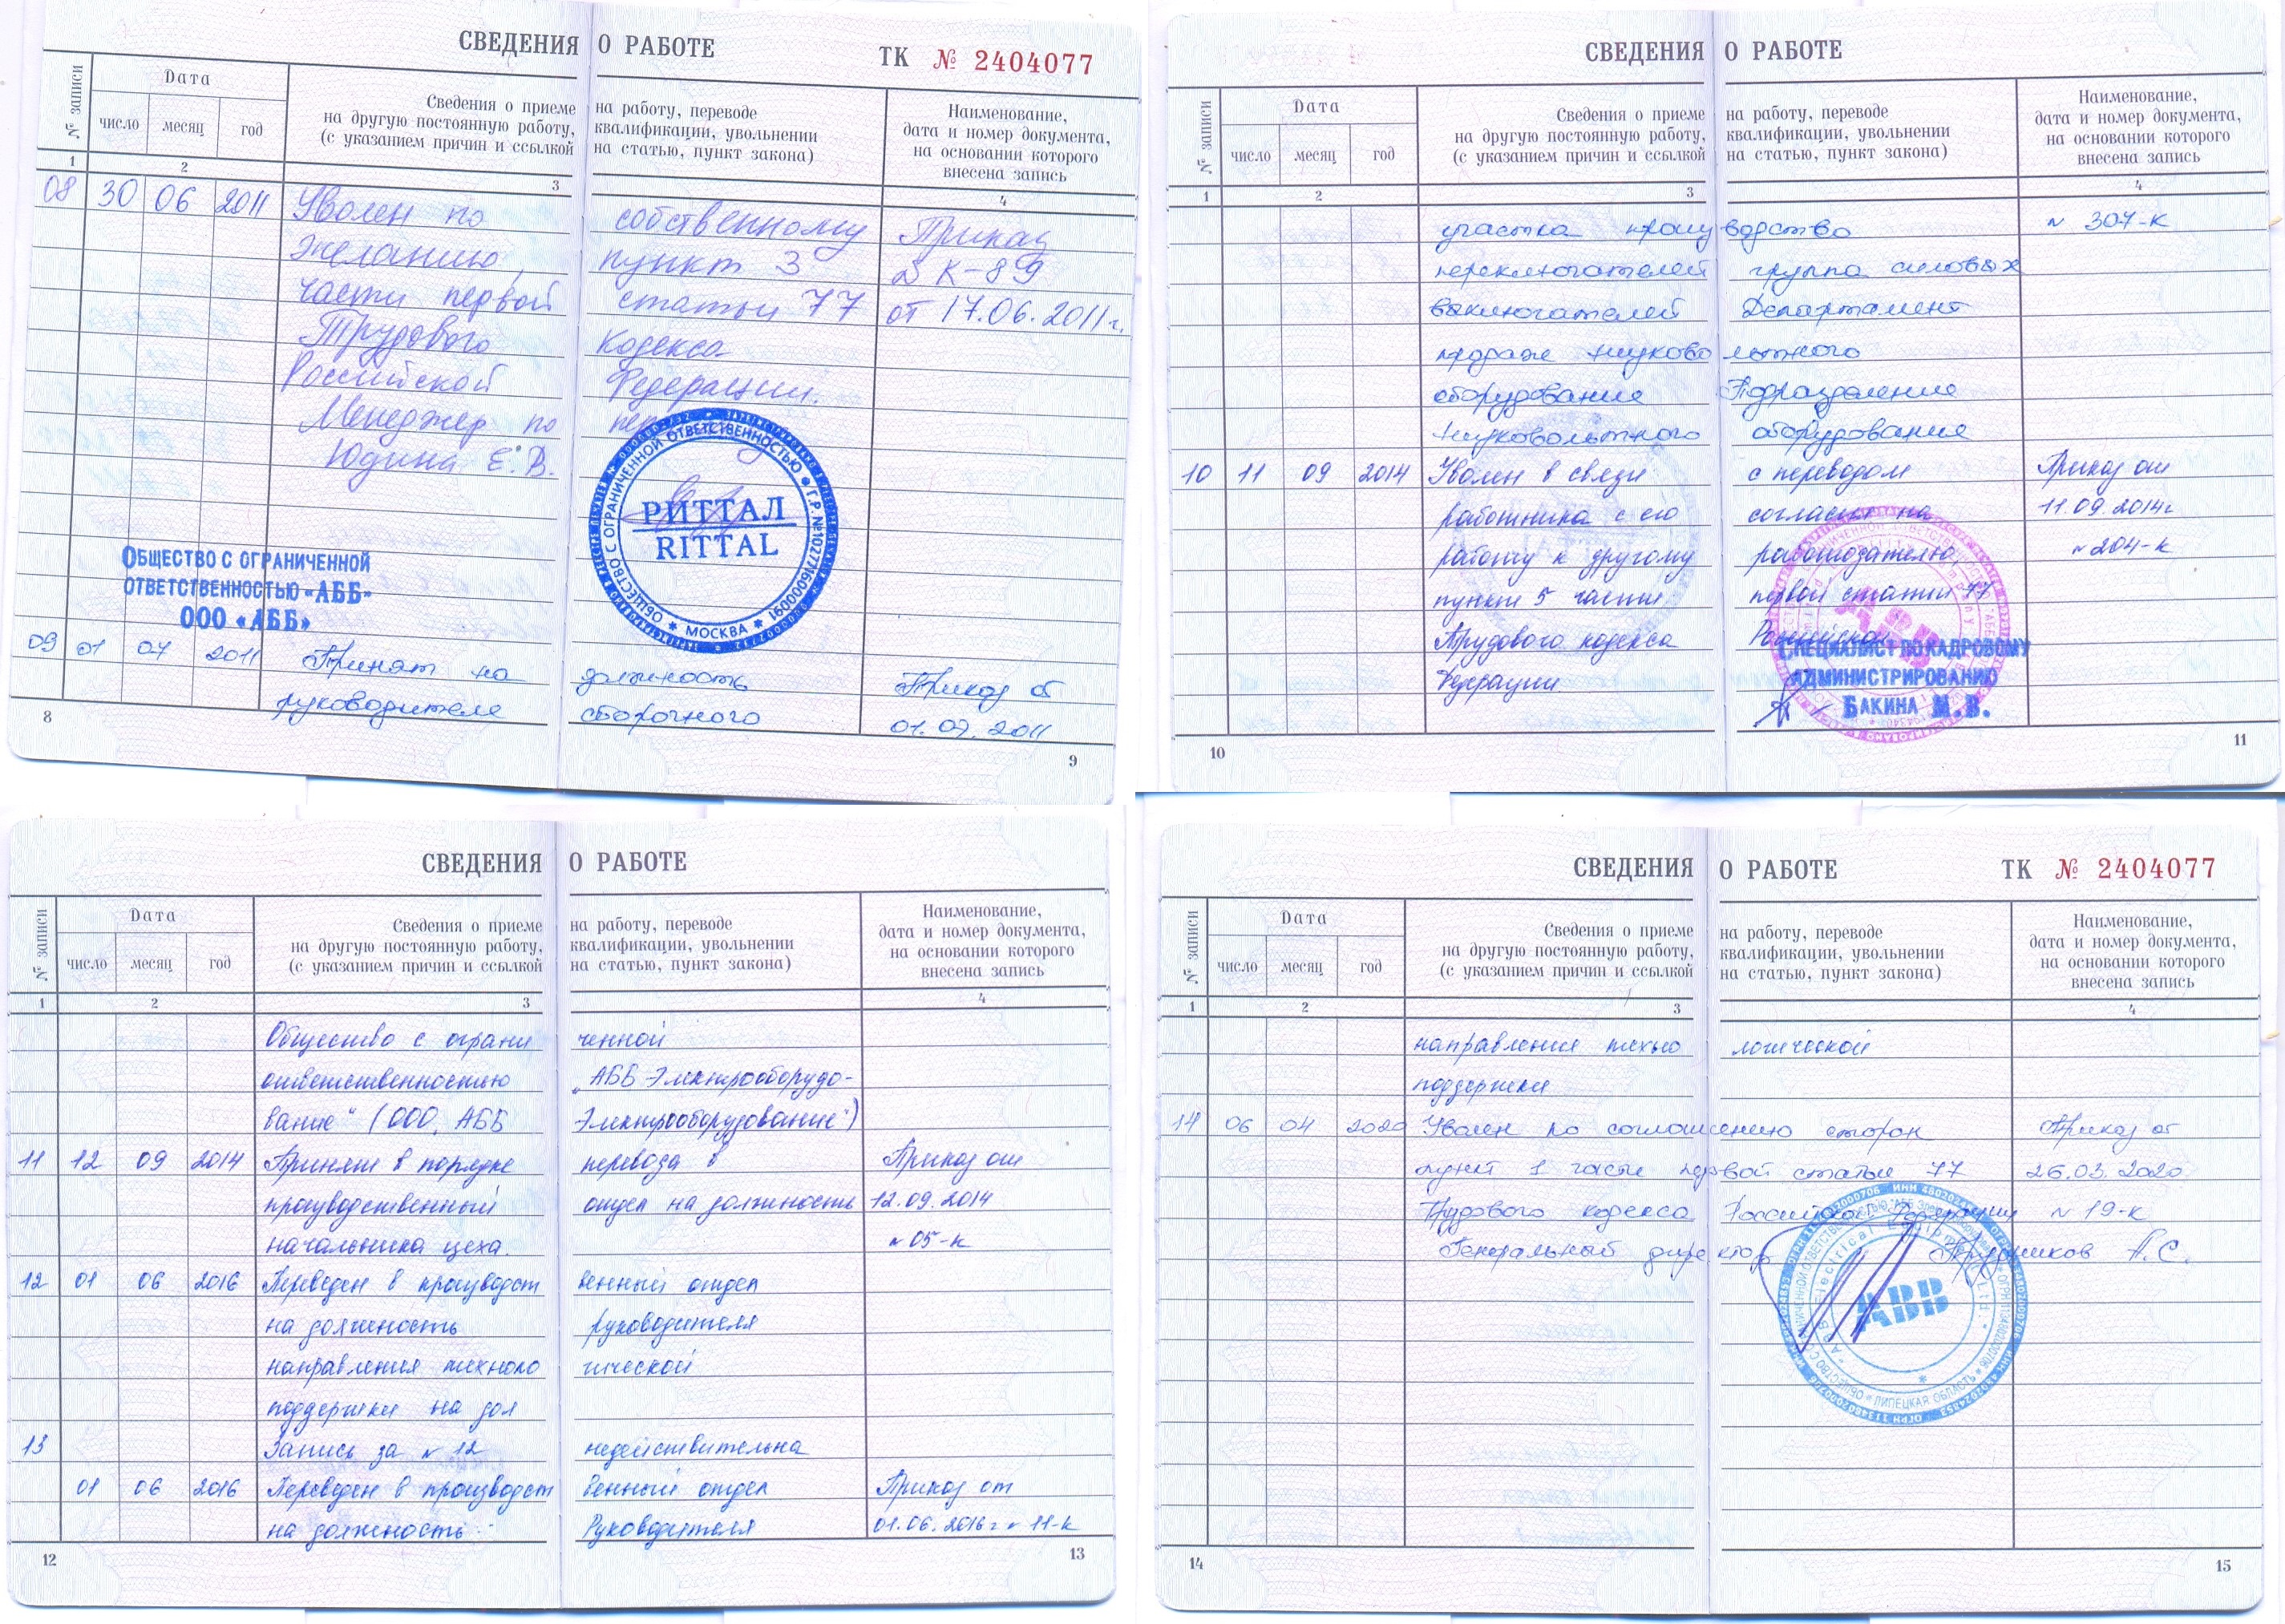 СВЕДЕНИЯ О РАБОТЕ ТК № 2404077
№ записи
Дата
число месяц год
Сведения о приеме на работу, переводе
на другую постоянную работу, квалификации, увольнении
(с указанием причин и ссылкой на статью, пункт закона)
Наименование,
дата и номер документа,
на основании которого
внесена запись
1 2 3 4
08 30 06 2011 Уволен по собственному Приказ
желанию, пункт 3 № К-89
части первой статьи 77 от 17.06.2011г.
Трудового Кодекса
Российской Федерации.
Менеджер по пер
Юдина Е.В.
ОБЩЕСТВО С ОГРАНИЧЕННОЙ ОТВЕТСТВЕННОСТЬЮ
Г.Р.№1027716000091
РИТТАЛ
RITTAL
МОСКВА
ОБЩЕСТВО С ОГРАНИЧЕННОЙ
ОТВЕТСТВЕННОСТЬЮ «АББ»
ООО «АББ»
09 01 07 2011 Принят на должность Приказ от
руководителя сборочного 01.07.2011
8 9
СВЕДЕНИЯ О РАБОТЕ
№ записи
Дата
число месяц год
Сведения о приеме на работу, переводе
на другую постоянную работу, квалификации, увольнении
(с указанием причин и ссылкой на статью, пункт закона)
Наименование,
дата и номер документа,
на основании которого
внесена запись
1 2 3 4
участка производство № 307-к
переключателей группа силовых
выключателей Департамент
продаж низковольтного
оборудование Подразделение
низковольтного оборудование
10 11 09 2014 Уволен в связи с переводом Приказ от
работника с его согласия на 11.09.2014г
работу к другому работодателю, № 204-к
пункт 5 части первой статьи 77
Трудового кодекса Российской
Федерации
ABB
СПЕЦИАЛИСТ ПО КАДРОВОМУ
АДМИНИСТРИРОВАНИЮ
БАКИНА М.В.
10 11
СВЕДЕНИЯ О РАБОТЕ
№ записи
Дата
число месяц год
Сведения о приеме на работу, переводе
на другую постоянную работу, квалификации, увольнении
(с указанием причин и ссылкой на статью, пункт закона)
Наименование,
дата и номер документа,
на основании которого
внесена запись
1 2 3 4
Общество с ограниченной
ответственностью „АББ Электрооборудо-
вание" (ООО „АББ Электрооборудование")
11 12 09 2014 Принят в порядке перевода в Приказ от
производственный отдел на должность 12.09.2014
начальника цеха. № 05-к
12 01 06 2016 Переведен в производственный отдел
на должность руководителя
направления технологической
поддержки на дол
13 Запись за № 12 недействительна
01 06 2016 Переведен в производственный отдел Приказ от
на должность Руководителя 01.06.2016г № 11-к
12 13
СВЕДЕНИЯ О РАБОТЕ ТК № 2404077
№ записи
Дата
число месяц год
Сведения о приеме на работу, переводе
на другую постоянную работу, квалификации, увольнении
(с указанием причин и ссылкой на статью, пункт закона)
Наименование,
дата и номер документа,
на основании которого
внесена запись
1 2 3 4
направления технологической
поддержки
14 06 04 2020 Уволен по соглашению сторон Приказ от
пункт 1 части первой статьи 77 26.03.2020
Трудового кодекса Российской Федерации № 19-к
Генеральный директор Прудников А.С.
ABB
ЛИПЕЦКАЯ ОБЛАСТЬ
14 15